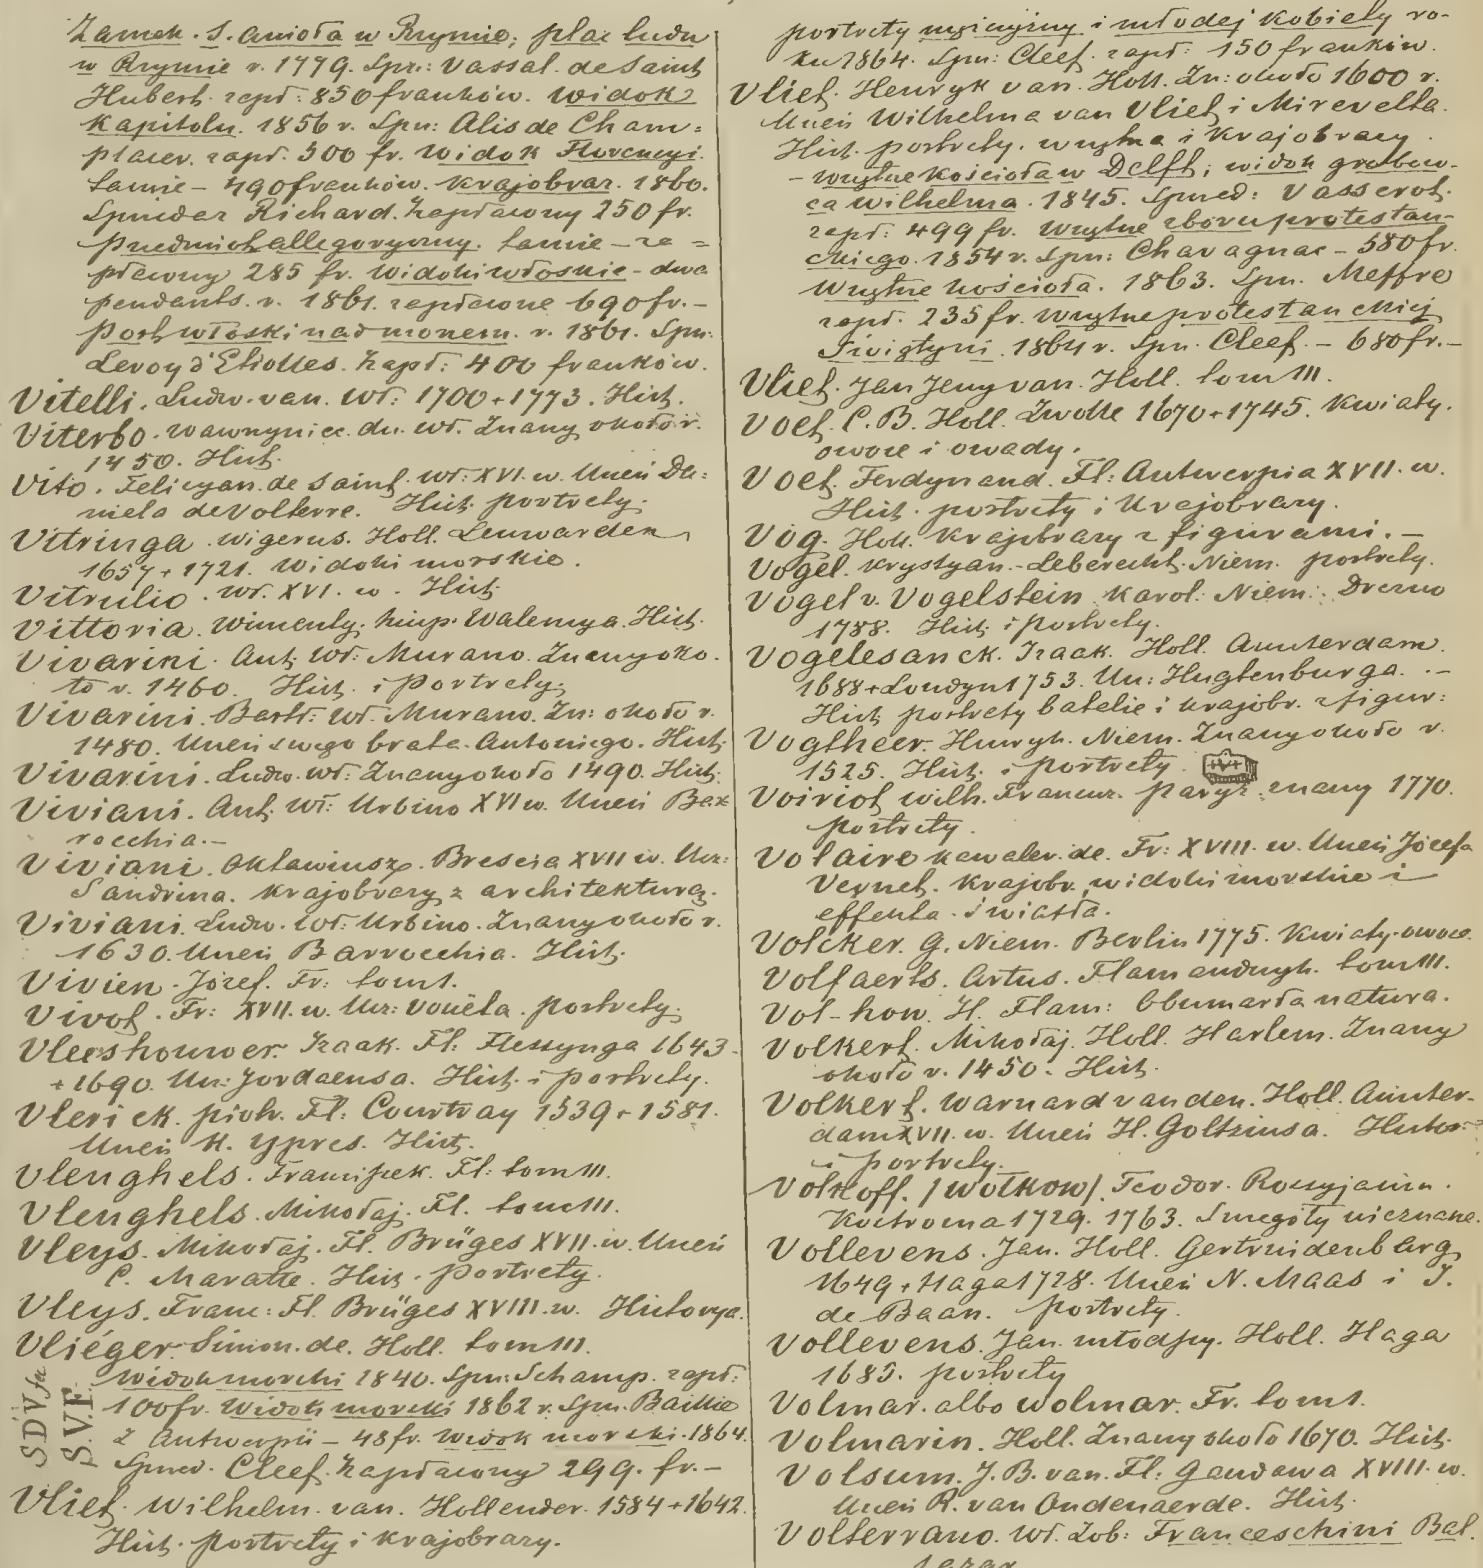 Zamek. S. Anioła w Rzymie; plac ludu
w Rzymie r. 1779. Sprz: Vassal. de Saint
Hubert. zapł: 850 franków. Widok
Kapitolu. 1856 r. Sprz: Alis de Cham=
placer. zapł. 500 fr. Widok Florencyi.
tamże – 490 franków. Krajobraz. 1860.
Sprzedaż Richard. Zapłacony 250 fr.
Przedmiot allegoryczny. tamże – za =
płacony 285 fr. Widoki włoskie – dwa
pendants. r. 1861. zapłacone 690 fr. –
Port włoski nad morzem. r. 1861. Sprz:
Leroy d'Etiolles. Zapł: 400 franków.
Vitelli. Ludw. van. Wł: 1700 + 1773. Hist.
Viterbo. Wawrzyniec. du. Wł. Znany około r.
1450. Hist.
Vito. Felicyan. de Saint. Wł: XVI. w. Uczeń Da:
niela de Volterre. Hist. portrety.
Vitringa. Wigerus. Holl. Leuwarden
1657 + 1721. Widoki morskie.
Vitrulio. Wł. XVI. w. Hist.
Vittoria. Wincenty. hiszp. Walencya. Hist.
Vivarini. Ant. Wł: Murano. Znany oko.
ło r. 1460. Hist. i portrety.
Vivarini. Bartł: Wł. Murano. Zn: około r.
1480. Uczeń swego brata. Antoniego. Hist.
Vivarini. Ludw. Wł: Znany około 1490. Hist.
Viviani. Ant. Wł: Urbino XVI w. Uczeń Ba
rocchia. –
Viviani. Oktawiusz. Brescia XVII w. Ucz:
Sandrina. Krajobrazy z architekturą.
Viviani. Ludw. Wł: Urbino. Znany około r.
1630. Uczeń Barrocchia. Hist.
Vivien. Józef. Fr: tom 1.
Vivot. Fr: XVII. w. Ucz: Vouëta. portrety.
Vleeshouwer. Izaak. Fl: Flessynga 1643
+ 1690. Ucz: Jordaensa. Hist. i portrety.
Vlerick. piotr. Fl: Courtray 1539 + 1581.
Uczeń K. Ypres. Hist.
Vlenghels. Franciszek. Fl: tom III.
Vlenghels. Mikołaj. Fl. tom III.
Vleys. Mikołaj. Fl. Brüges XVII. w. Uczeń
C. Maratte. Hist. portrety.
Vleys. Franc: Fl. Brüges XVIII. w. Historya.
Vliéger. Simon. de. Holl. tom III.
SDV fe
S.V.F.
Widok morski 1840. Sprz: Schamp. zapł:
100 fr. Widok morski 1862 r. Sprz. Baillie
z Antwerpii – 48 fr. Widok morski. 1864.
Sprzed. Cleef. Zapłacony 299. fr. –
Vliet. Wilhelm. van. Hollender. 1584 + 1642.
Hist. portrety i krajobrazy.
portrety mężczyzny i młodej kobiety ro-
ku 1864. Sprz: Cleef. zapł: 150 franków.
Vliet. Henryk van. Holl. Zn: około 1600 r.
Uczeń Wilhelma van Vliet i Mirevelta.
Hist. portrety. wnętrza i krajobrazy.
– Wnętrze kościoła w Delft; widok grobow-
ca Wilhelma. 1845. Sprzed: Vasserot.
zapł: 499 fr. Wnętrze zboru protestan-
ckiego. 1854 r. Sprz: Chavagnac – 580 fr.
Wnętrze kościoła. 1863. Sprz. Meffre
zapł. 235 fr. Wnętrze protestanckiej
Świątyni. 1864 r. Sprz. Cleef. – 680 fr. –
Vliet. Jan Jerzy van. Holl. tom III.
Voet. C. B. Holl. Zwolle 1670 + 1745. Kwiaty.
owoce i owady.
Voet. Ferdynand. Fl: Antwerpia XVII. w.
Hist. portrety i krajobrazy.
Vog. Holl. Krajobrazy z figurami. –
Vogel. Krystyan. – Leberecht. Niem. portrety.
Vogel v. Vogelstein. Karol. Niem: Drezno
1788. Hist. i portrety.
Vogelesanck. Izaak. Holl. Amsterdam.
1688 + Londyn 1753. Ucz: Hugtenburga. –
Hist. portrety batalie i krajobr. z figur:
Vogtheer. Henryk. Niem. Znany około r.
1525. Hist. i portrety. HV
Voiriot. Wilh. Francuz. paryż. znany 1770.
portrety.
Volaire kawaler. de. Fr: XVIII. w. Uczeń Józefa
Vernet. Krajobr. widoki morskie i
effekta. światła.
Volcker. G. Niem. Berlin 1775. Kwiaty. owoce.
Volfaerts. Artus. Flamandczyk. tom III.
Vol-hon. H. Flam: Obumarła natura.
Volkert. Mikołaj. Holl. Harlem. Znany
około r. 1450. Hist.
Volkert. Warnard van den. Holl. Amster-
dam XVII. w. Uczeń H. Goltziusa. Histor:
i portrety.
Volkoff. /Wołkow/. Teodor. Rossyjanin.
Kostroma 1729. 1763. Szczegóły nieznane.
Vollevens. Jan. Holl. Gertruidenberg
1649 + Haga 1728. Uczeń N. Maas i J.
de Baan. portrety.
Vollevens. Jan. młodszy. Holl. Haga
1685. portrety
Volmar. albo Wolmar. Fr. tom 1.
Volmarin. Holl. Znany około 1670. Hist.
Volsum. J. B. van. Fl: Gandawa XVIII. w.
Uczeń R. van Oudenaerde. Hist.
Volterrano. Wł. Zob: Franceschini Bal.